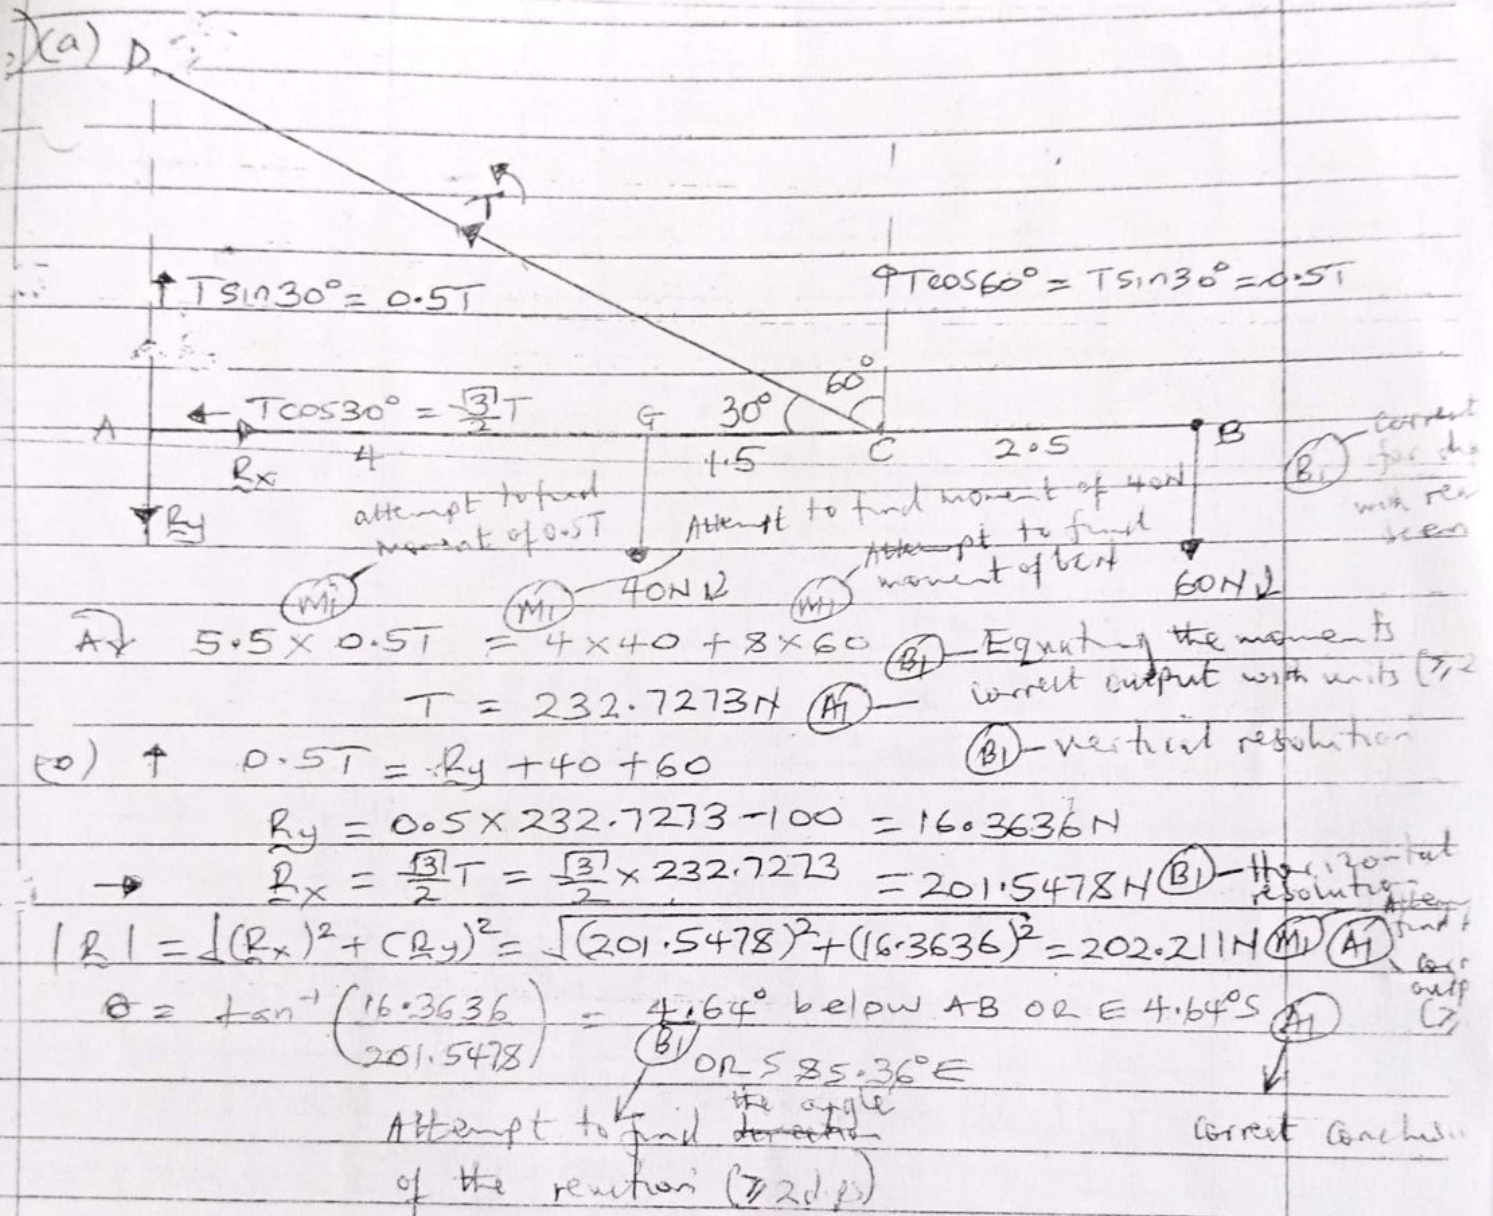 (a) D
T
Tsin30° = 0.5T
Tcos60° = Tsin30° = 0.5T
60°
A Tcos30° = √3/2 T G 30° C B
4 1.5 2.5
Rx
Ry
B1 correct for
with
attempt to find moment of 0.5T
Attempt to find moment of 40N
Attempt to find moment of 60N
M1 M1 40N M1 60N
A 5.5 × 0.5T = 4×40 + 8×60 B1 Equating the moments
T = 232.7273N A1 correct output with units (≥2
↑ 0.5T = Ry + 40 + 60 B1 - vertical resolution
Ry = 0.5 × 232.7273 - 100 = 16.3636N
→ Rx = √3/2 T = √3/2 × 232.7273 = 201.5478N B1 - Horizontal resolution
|R| = √(Rx)² + (Ry)² = √(201.5478)² + (16.3636)² = 202.211N M1 A1
θ = tan⁻¹ (16.3636 / 201.5478) = 4.64° below AB OR E 4.64°S A1
B1 OR S 85.36°E
Attempt to find the angle direction
of the reaction (≥2d.ps)
correct